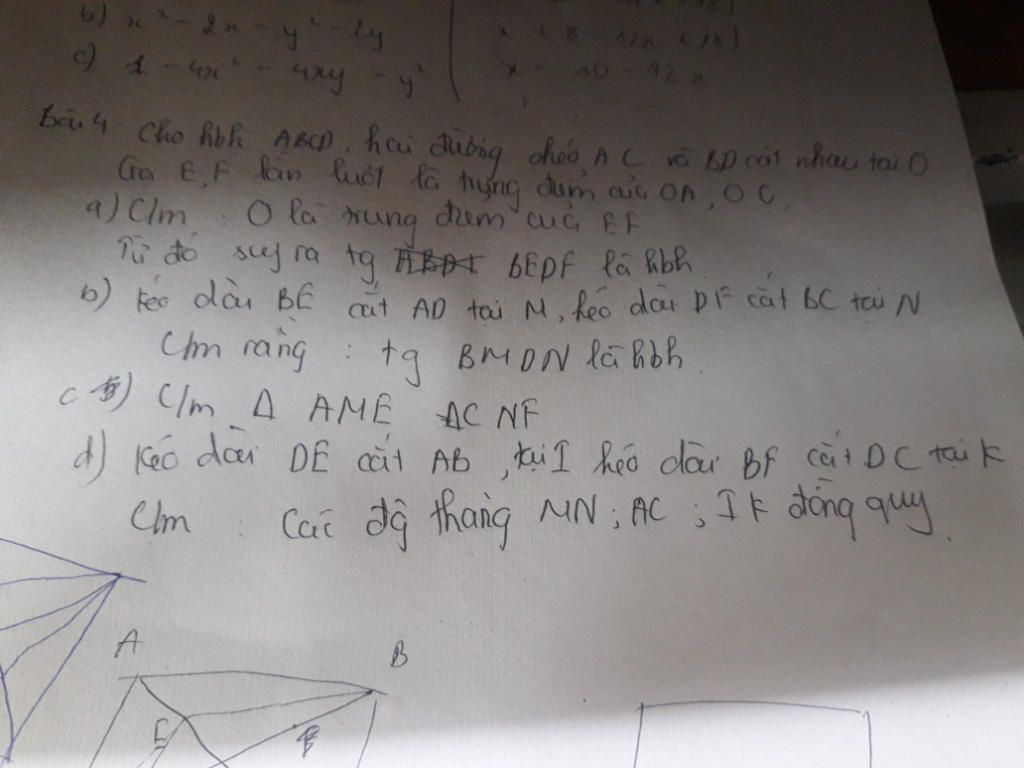 b) x² - 2x - y² - 2y
c) 1 - 4x² - 4xy - y²
x - 10 - 12x
Bài 4. Cho hbh ABCD, hai đường chéo AC và BD cắt nhau tại O
Gọi E, F lần lượt là trung điểm của OA; OC.
a) C/m : O là trung điểm của EF
Từ đó suy ra tg BEDF là hbh
b) kéo dài BE cắt AD tại M, kéo dài DF cắt BC tại N
C/m rằng : tg BMDN là hbh.
c) C/m Δ AME ΔCNF
d) kéo dài DE cắt AB, tại I kéo dài BF cắt DC tại K
C/m : Các đg thẳng MN; AC; IK đồng quy.
A
B
E
F